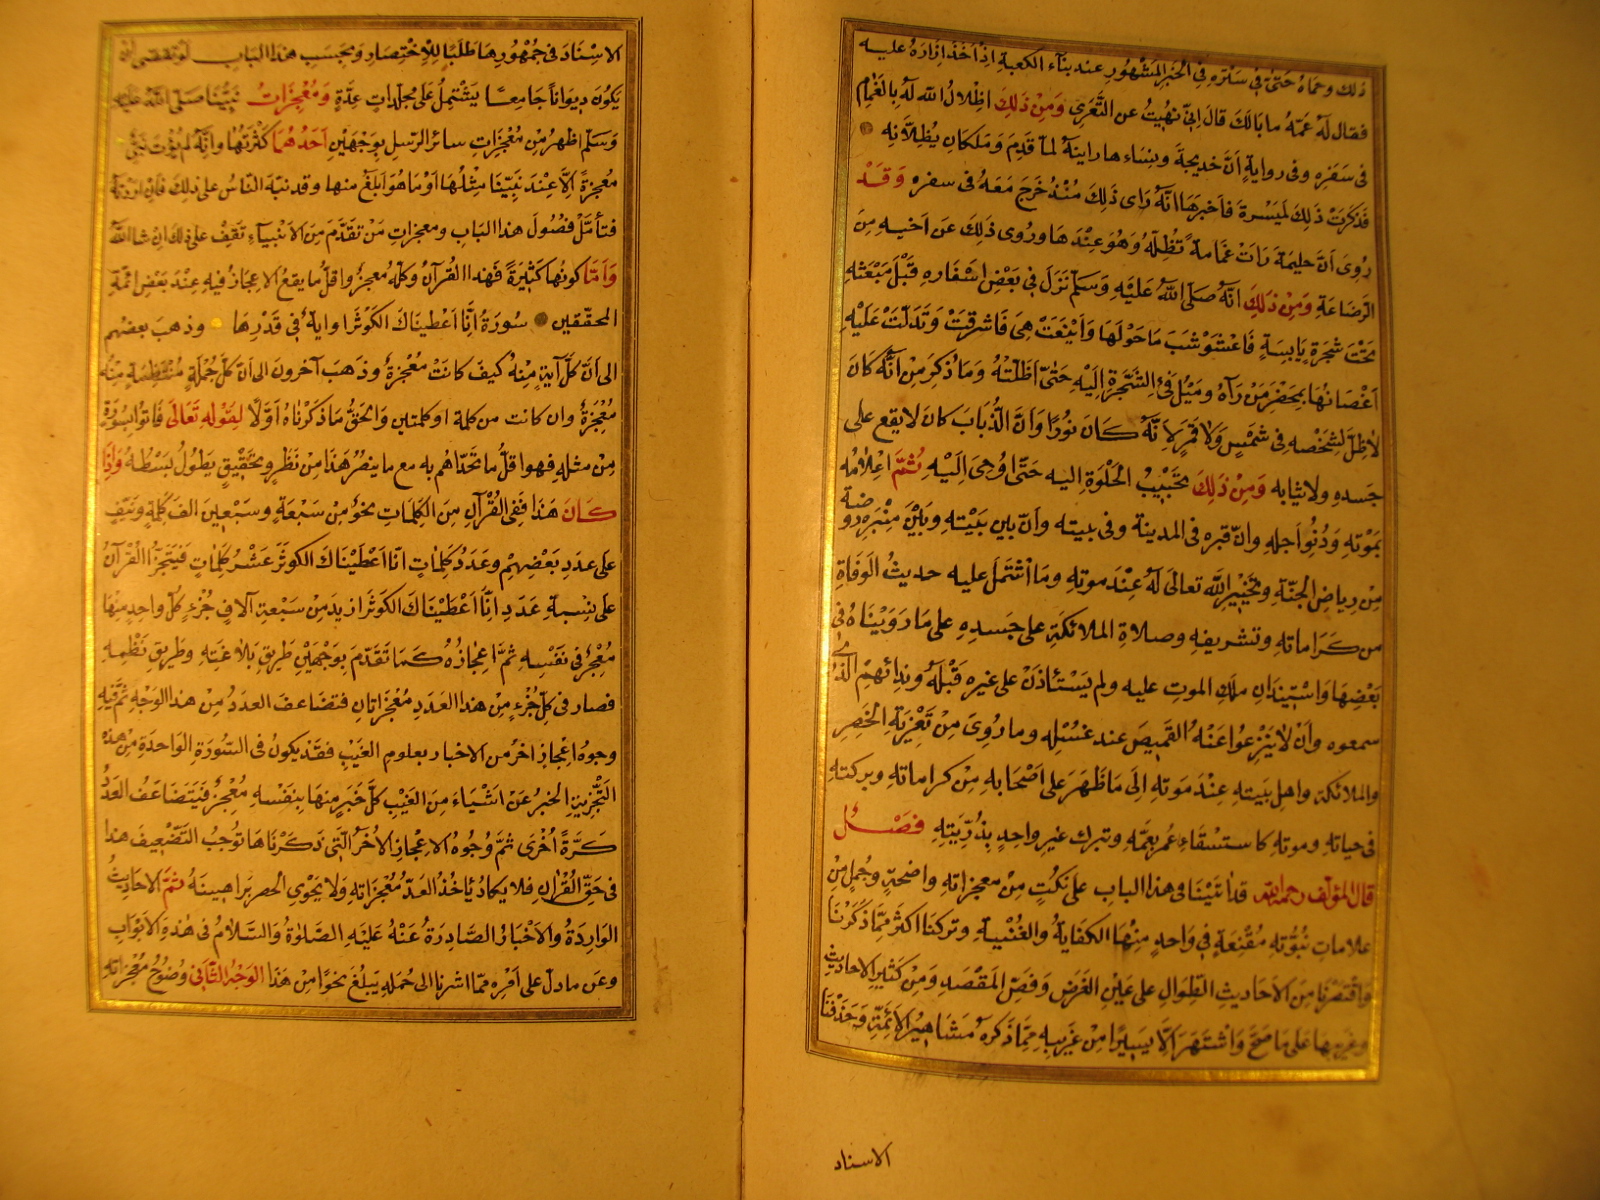 ذلك وحماه حتى في ستره في الخبر المشهور عند بناء الكعبة اذ اخذ ازاره عليه
فقال له عمه ما بالك قال اني نهيت عن التعري ومن ذلك اظلال الله له بالغمام
في سفره وفي رواية ان خديجة ونساءها راينه لما قدم وملكان يظلانه
فذكرت ذلك لميسرة فاخبرها انه راى ذلك منذ خرج معه في سفره وقد
روى ان حليمة رات غمامة تظله وهو عندها وروى ذلك عن اخيه من
الرضاعة ومن ذلك انه صلى الله عليه وسلم نزل في بعض اسفاره قبل مبعثه
تحت شجرة يابسة فاعشوشب ما حولها واينعت هي فاشرقت وتدلت عليه
اغصانها بمحضر من رآه وميل فئ الشجرة اليه حتى اظلته وما ذكر من انه كان
لا ظل لشخصه في شمس ولا قمر لانه كان نورا وان الذباب كان لا يقع على
جسده ولا ثيابه ومن ذلك تحبيب الخلوة اليه حتى اوحى اليه ثم اعلامه
بموته ودنو اجله وان قبره في المدينة وفي بيته وان بين بيته وبين منبره روضة
من رياض الجنة وتخيير الله تعالى له عند موته وما اشتمل عليه حديث الوفاة
من كراماته وتشريفه وصلاة الملائكة على جسده على ما رويناه في
بعضها واستيذان ملك الموت عليه ولم يستأذن على غيره قبله وندائهم الذي
سمعوه وان لا ينزعوا عنه القميص عند غسله وما روى من تعزية الخضر
والملائكة واهل بيته عند موته الى ما ظهر على اصحابه من كراماته وبركته
في حياته وموته كاستسقاء عمر بعمه وتبرك غير واحد بذريته فصل
قال المؤلف رحمه الله قد اتينا في هذا الباب على نكت من معجزاته واضحة وجمل من
علامات نبوته مقنعة في واحد منها الكفاية والغنية وتركنا اكثر مما ذكرنا
واقتصرنا من الاحاديث الطوال على عين الغرض وفص المقصد ومن كثير الاحاديث
وغريبها على ما صح واشتهر الا يسيرا من غريبه مما ذكره مشاهير الائمة وحذفنا
الاسناد
الاسناد في جمهورها طلبا للاختصار وبحسب هذا الباب لو تقصى ان
يكون ديوانا جامعا يشتمل على مجلدات عدة ومعجزات نبينا صلى الله عليه
وسلم اظهر من معجزات سائر الرسل بوجهين احدهما كثرتها وانه لم يؤت نبى
معجزة الا عند نبينا مثلها او ما هو ابلغ منها وقد نبه الناس على ذلك فان اردته
فتأمل فصول هذا الباب ومعجزات من تقدم من الانبياء تقف على ذلك ان شا الله
واما كونها كثيرة فهذا القرآن وكله معجز واقل ما يقع الاعجاز فيه عند بعض ائمة
المحققين سورة انا اعطيناك الكوثر او اية في قدرها وذهب بعضهم
الى ان كل آية منه كيف كانت معجزة وذهب آخرون الى ان كل جملة منتظمة منه
معجزة وان كانت من كلمة او كلمتين والحق ما ذكرناه اولا لقوله تعالى فاتوا بسورة
من مثله فهو اقل ما تحداهم به مع ما ينصر هذا من نظر وتحقيق يطول بسطه واذا
كان هذا ففى القرآن من الكلمات نحو من سبعة وسبعين الف كلمة ونيف
على عدد بعضهم وعدد كلمات انا اعطيناك الكوثر عشر كلمات فيتجزأ القرآن
على نسبة عدد انا اعطيناك الكوثر ازيد من سبعة آلاف جزء كل واحد منها
معجز في نفسه ثم اعجازه كما تقدم بوجهين طريق بلاغته وطريق نظمه
فصار في كل جزء من هذا العدد معجزتان فتضاعف العدد من هذا الوجه ثم فيه
وجوه اعجاز اخر من الاخبار بعلوم الغيب فقد يكون في السورة الواحدة من هذه
التجزية الخبر عن اشياء من الغيب كل خبر منها بنفسه معجز فيتضاعف العدد
كرة اخرى ثم وجوه الاعجاز الاخر التي ذكرناها توجب التضعيف هذا
في حق القران فلا يكاد يأخذ العد معجزاته ولا يحوي الحصر براهينه ثم الاحاديث
الواردة والاخبار الصادرة عنه عليه الصلوة والسلام في هذه الابواب
وعن ما دل على امره مما اشرنا الى جمله يبلغ نحوا من هذا الوجه الثاني وضوح معجزاته